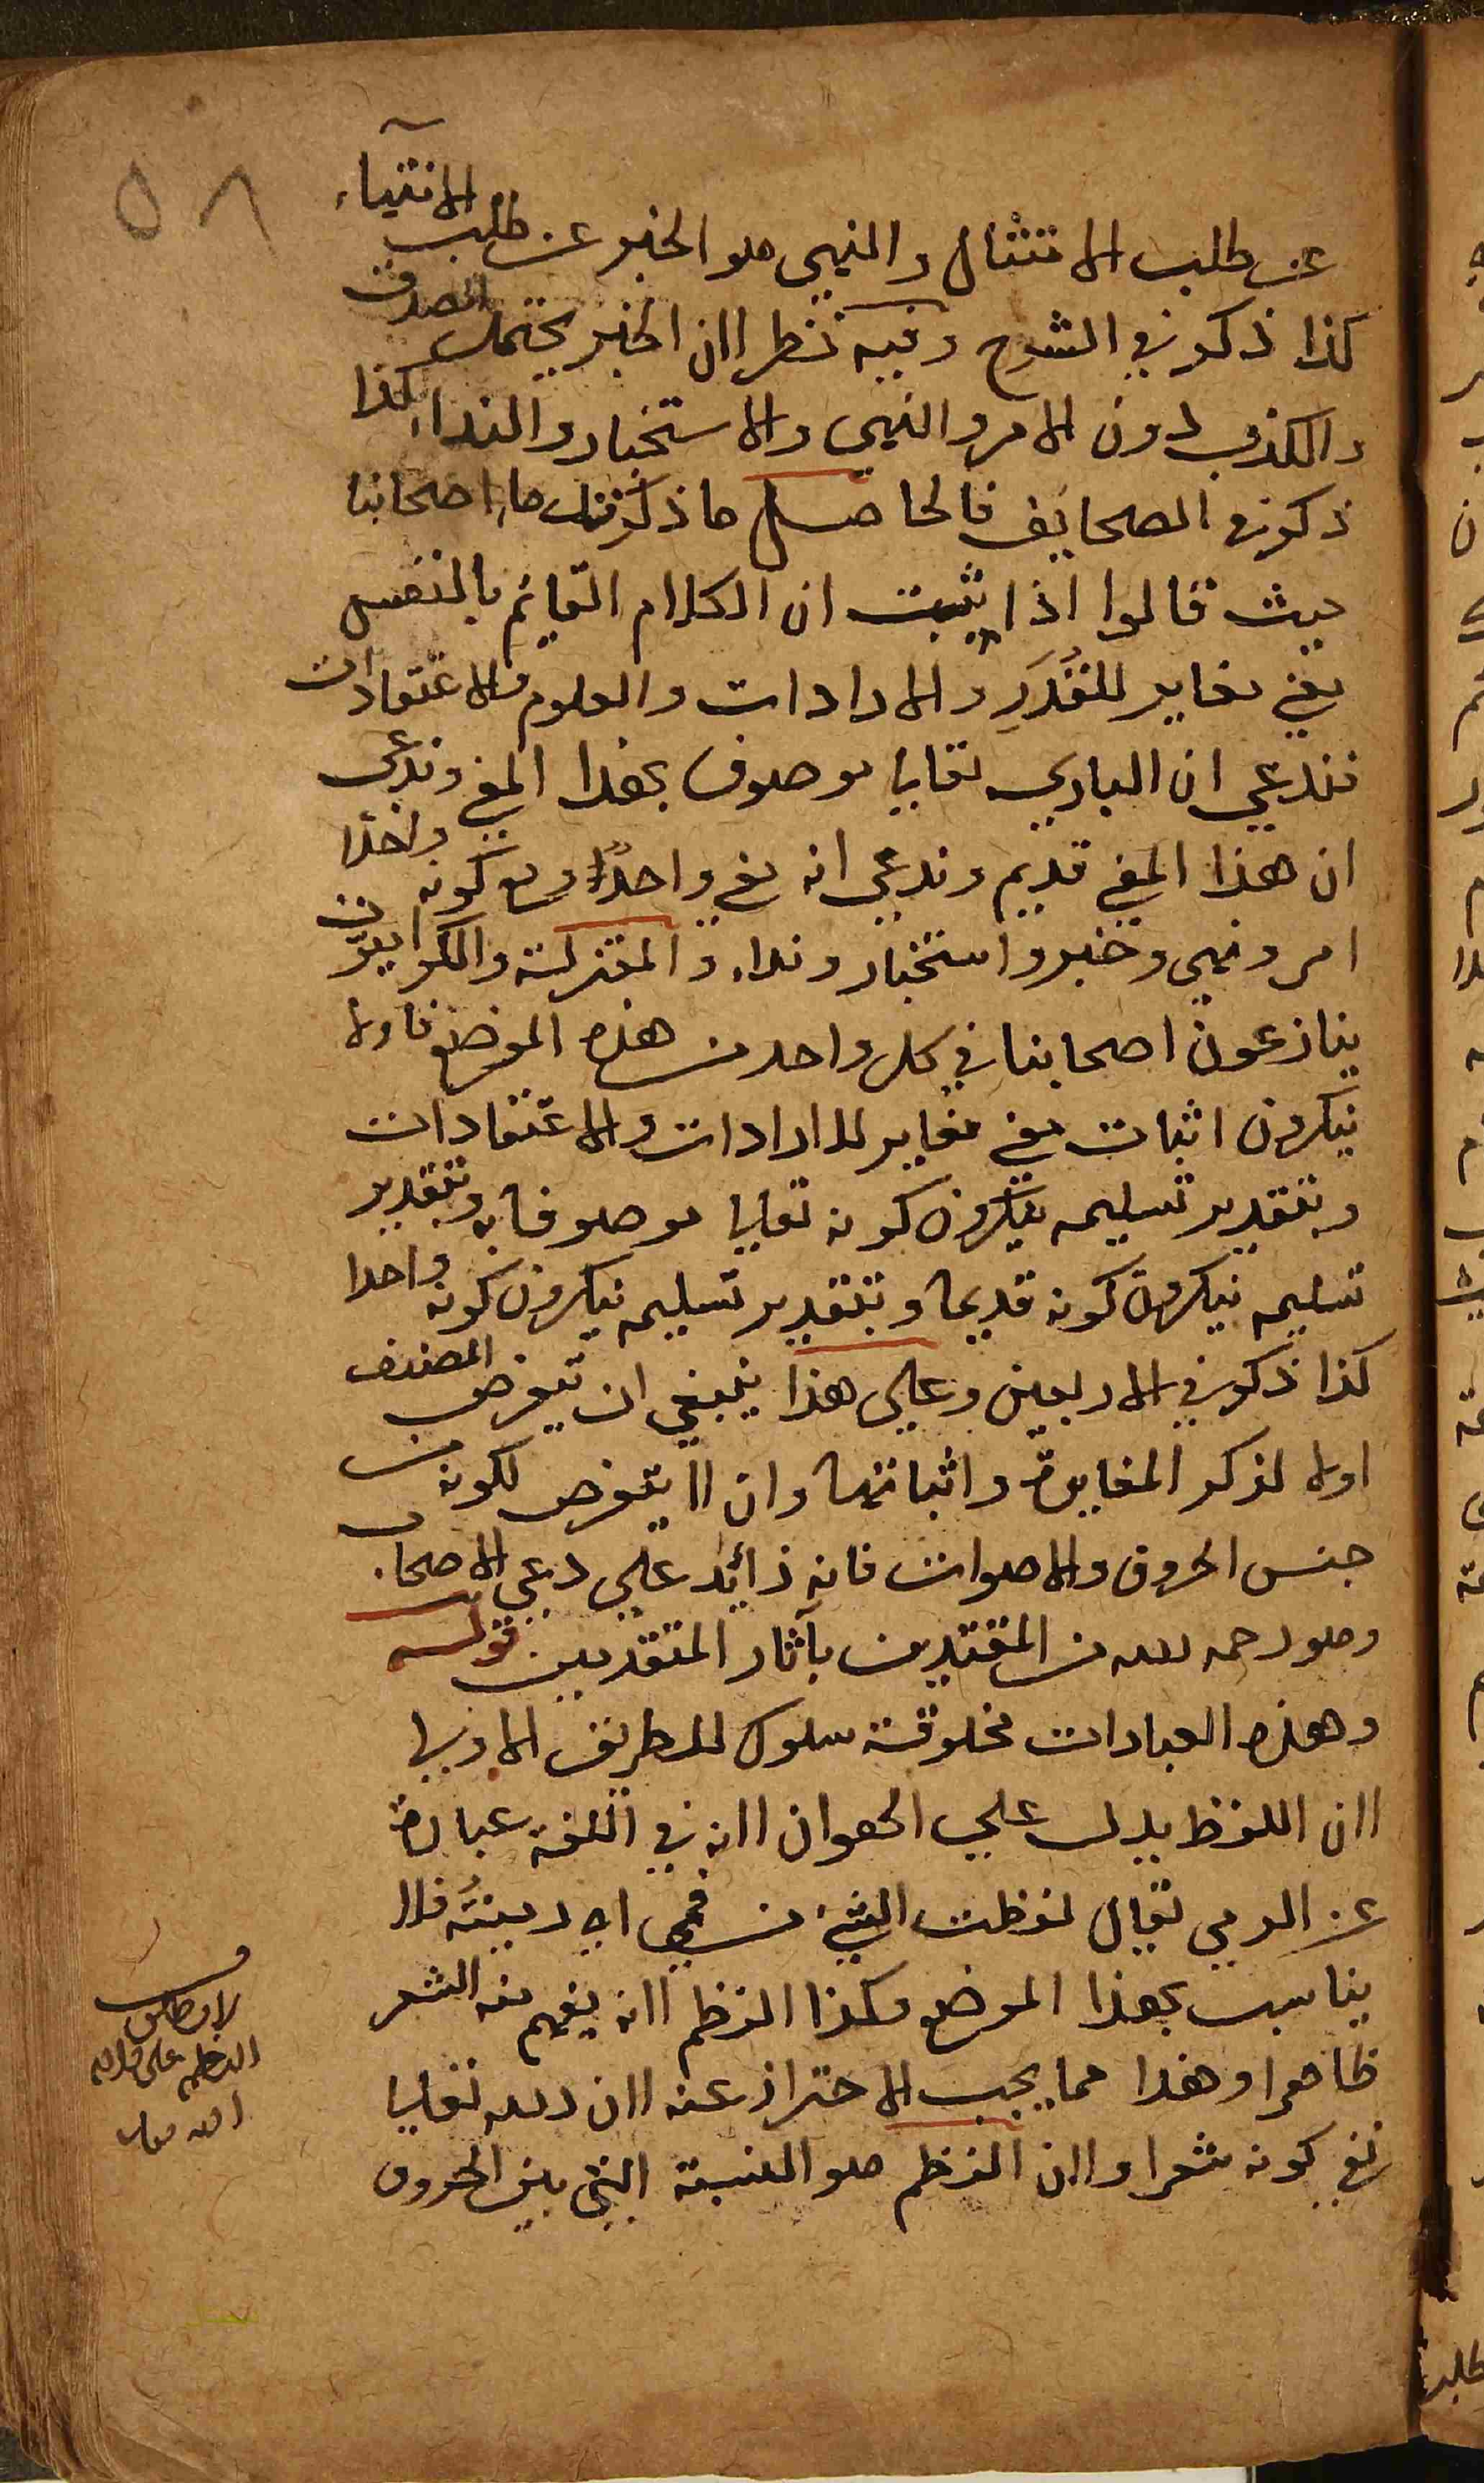 ٥٨
عن طلب الامتثال والنهي هو الخبر عن طلب الانتهاء
كذا ذكر في الشرح وفيه نظر لان الخبر يحتمل الصدق
والكذب دون الامر والنهي والاستخبار والنداء كذا
ذكر في الصحايف فالحاصل ما ذكر اصحابنا
حيث قالوا اذا ثبت ان الكلام القايم بالنفس
معني مغاير للقدر والارادات والعلوم والاعتقادات
فندعي ان الباري تعالي موصوف بهذا المعني وندعي
ان هذا المعني قديم وندعي انه معني واحدا ومع كونه واحدا
امر ونهي وخبر واستخبار ونداء والمعتزلة والكرا
ينازعون اصحابنا في كل واحد من هذه المواضع فاولا
ينكرون اثبات معني مغاير للارادات والاعتقادات
وبتقدير تسليمه ينكرون كونه تعالي موصوفا به وبتقدير
تسليمه ينكرون كونه قديما وبتقدير تسليمه ينكرون كونه واحدا
كذا ذكر في الاربعين وعلي هذا ينبغي ان يتعرض المصنف
اولا لذكر المغايرة واثباتها وان لا يتعرض لكونه من
جنس الحروف والاصوات فانه زائد علي دعوي الاصحاب
وهو رحمه الله من المقتدين بآثار المتقدمين قوله
وهذه العبارات مخلوقة سلوك للطريق الاولي
لان اللفظ يدل علي الهوان لانه في اللغة عبارة
عن الرمي يقال لفظت الشيء من فمي اي رميته فلا
يناسب بهذا الموضع وكذا النظم لانه يفهم منه الشعر
ظاهرا وهذا مما يجب الاحتراز عنه لان الله تعالي
نفي كونه شعرا ولان النظم هو النسبة التي بين الحروف